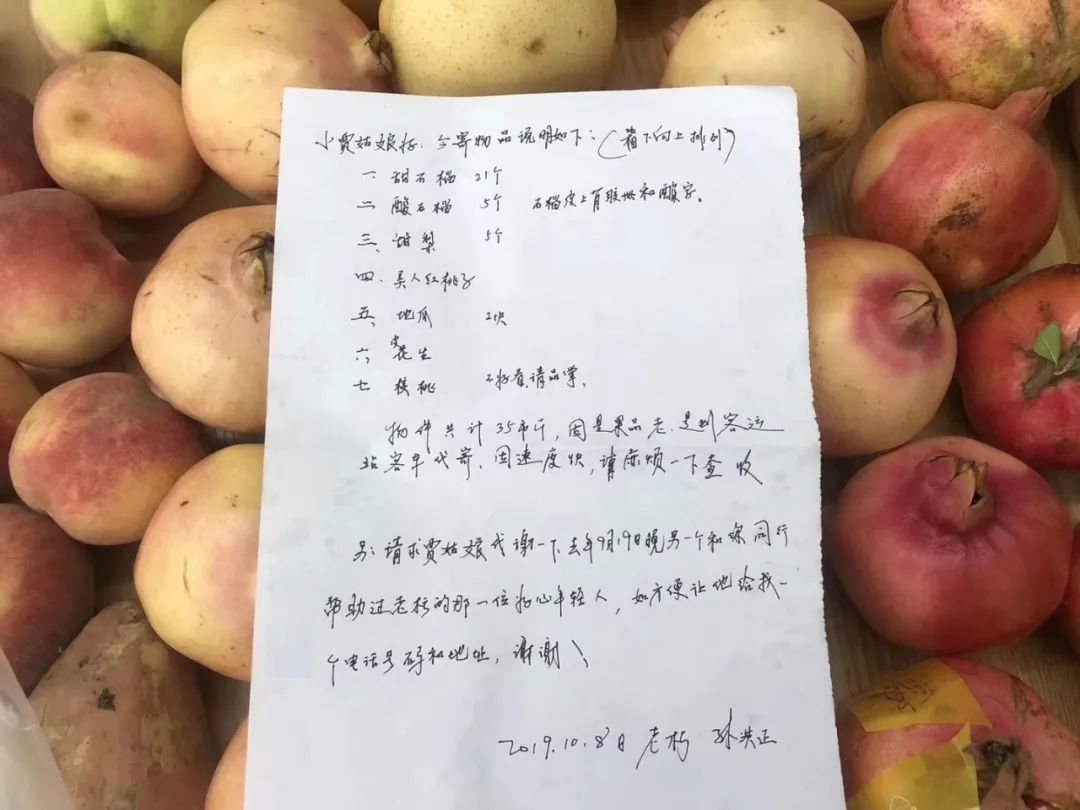 小贾姑娘好：今寄物品说明如下：（着下向上排列）
一 甜石榴 21个
二 酸石榴 5个 石榴皮上有胶带和酸字。
三、甜梨 5个
四、美人红桃子
五、地瓜 2块
六 花生
七 核桃 不好看请品尝、
物件共计35市斤，因是果品老.是到客运
站客车代寄、因速度快，请麻烦一下查收
另：请求贾姑娘代谢一下.去年9月19日晚另一个和你同行
帮助过老朽的那一位好心年轻人，如方便让他给我一
个电话号码和地址，谢谢！
2019.10.8日 老朽 孙洪正